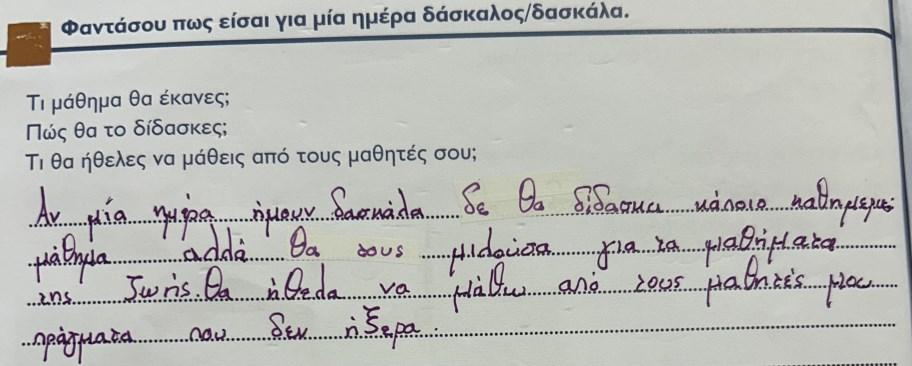 Φαντάσου πως είσαι για μία ημέρα δάσκαλος/δασκάλα.
Τι μάθημα θα έκανες;
Πώς θα το δίδασκες;
Τι θα ήθελες να μάθεις από τους μαθητές σου;
Αν μία ημέρα ήμουν δασκάλα δε θα δίδασκα κάποιο
μάθημα αλλά θα τους μιλούσα για τα μαθήματα
της ζωής. Θα ήθελα να μάθω από τους μαθητές μου
πράγματα που δεν ήξερα.